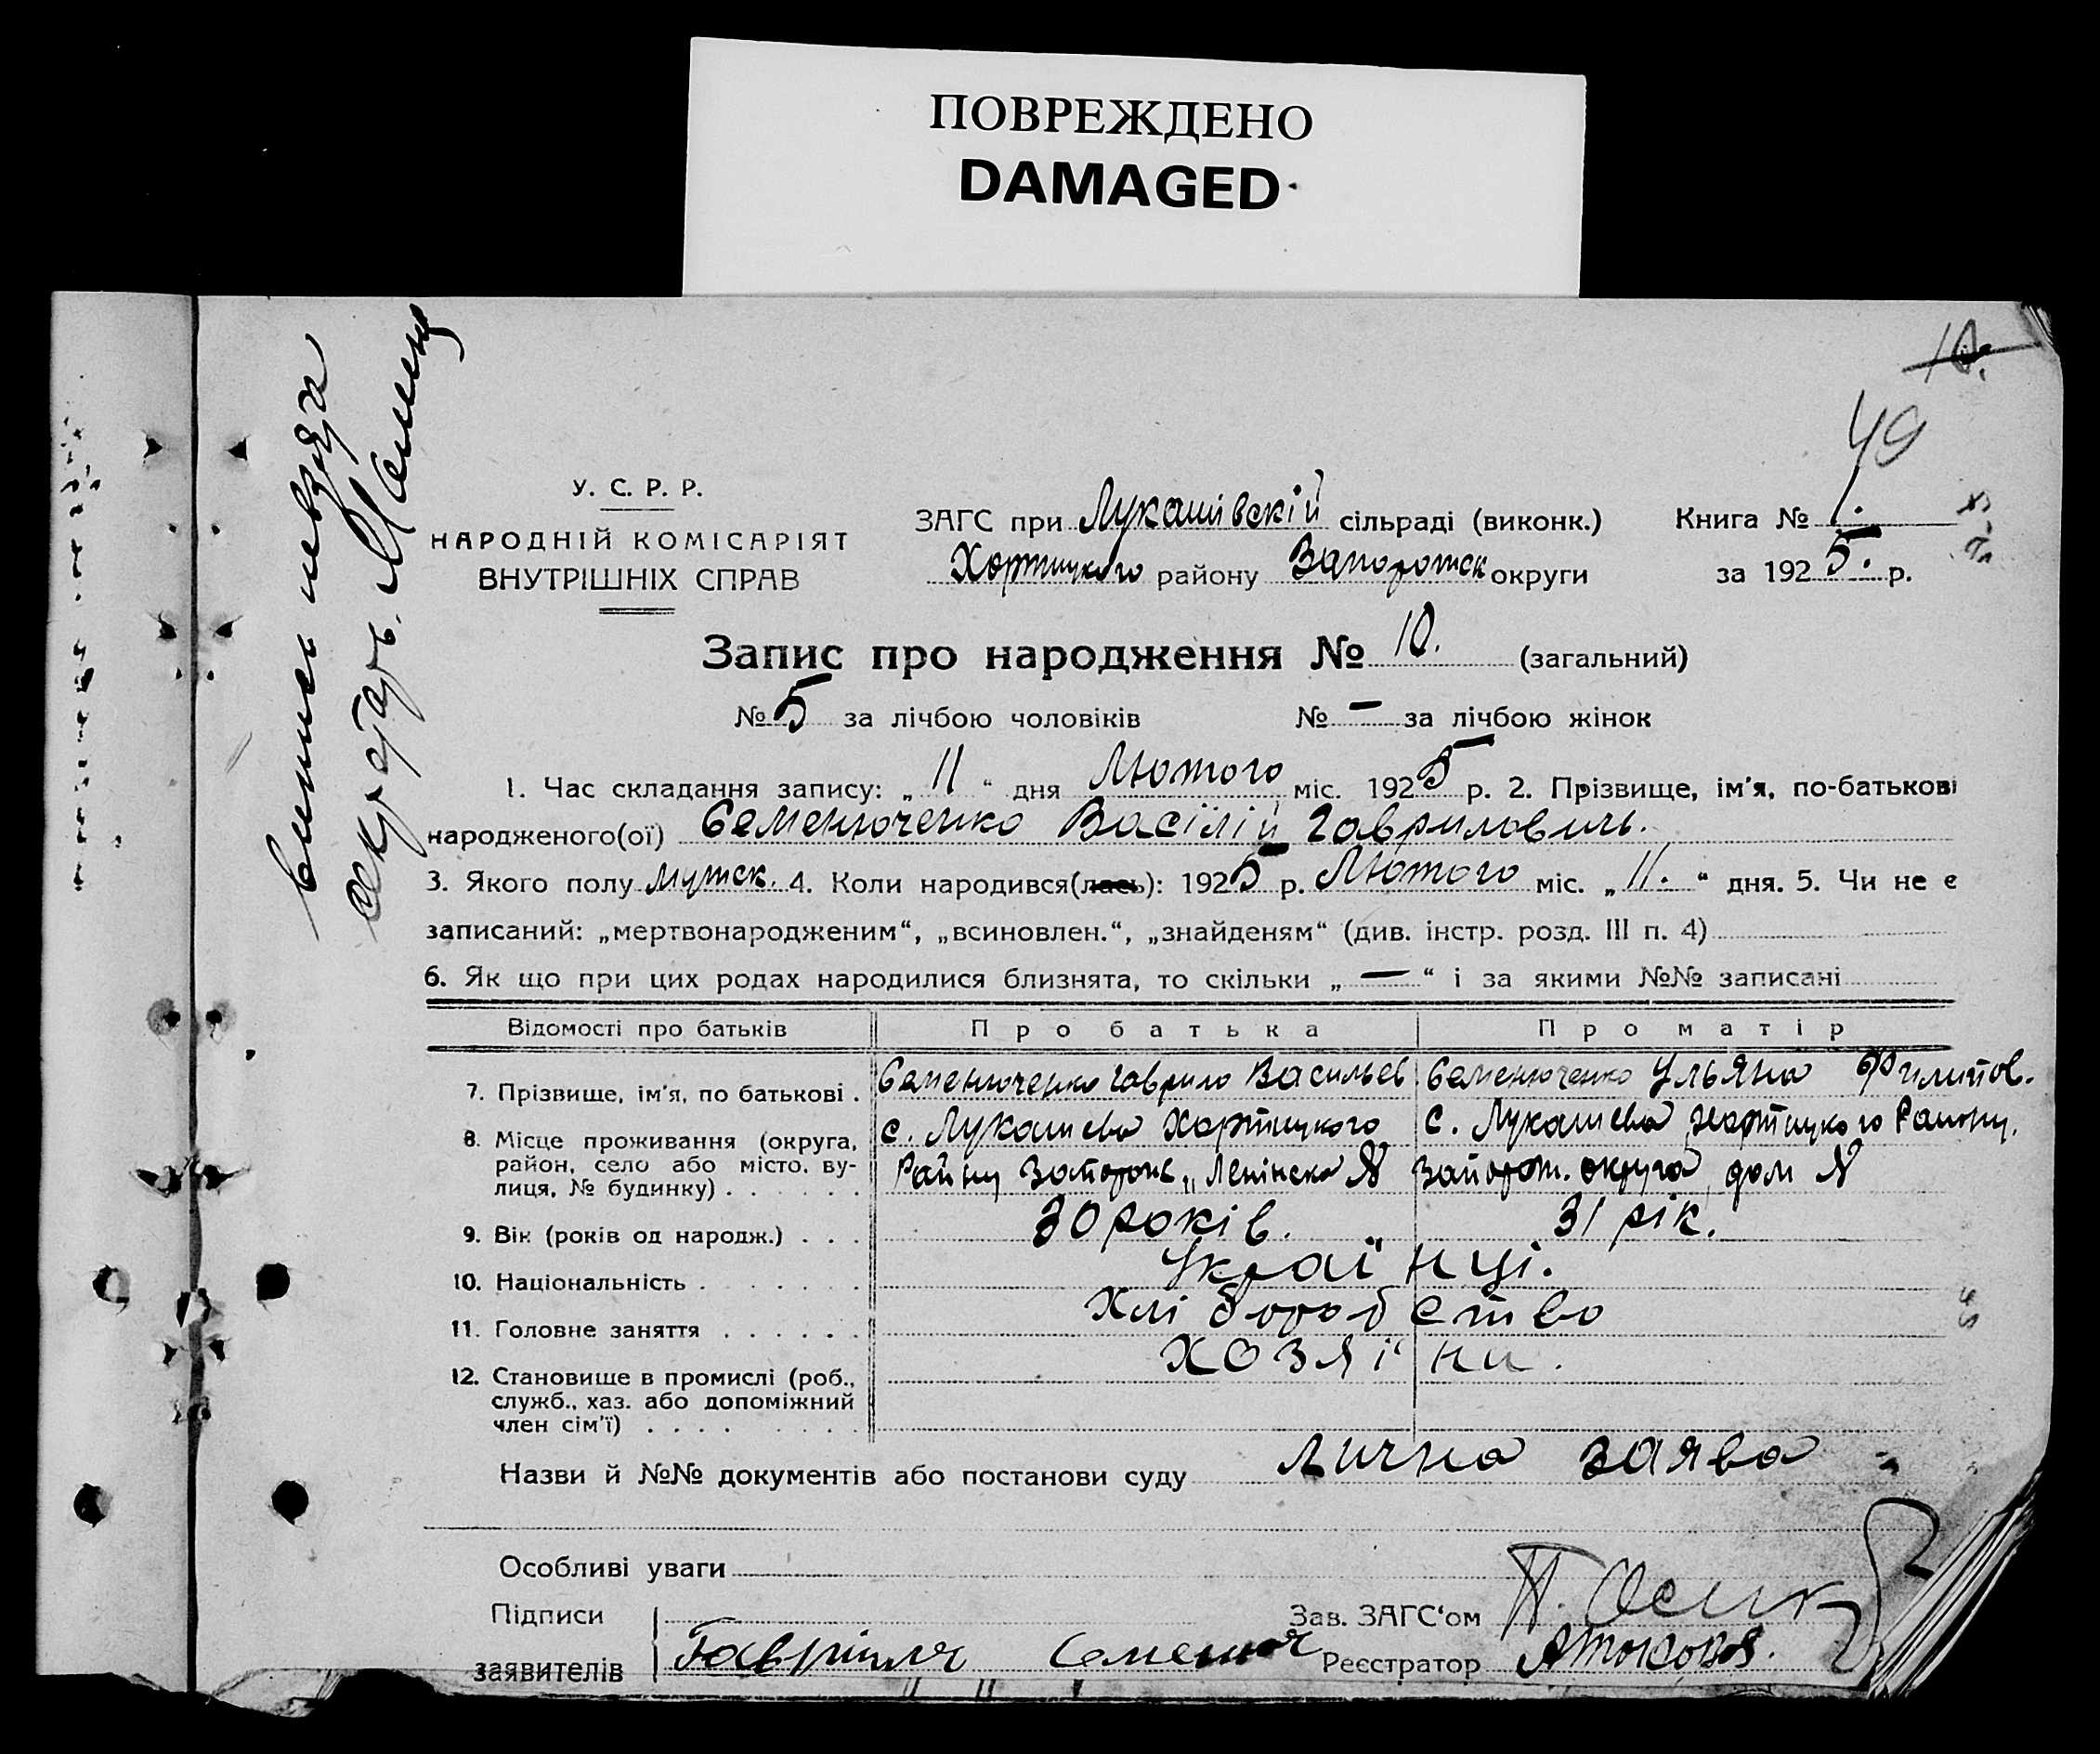 ПОВРЕЖДЕНО
DAMAGED
10.
49
У. С. Р. Р.
НАРОДНІЙ КОМІСАРІЯТ
ВНУТРІШНІХ СПРАВ
ЗАГС при Лукашівскій сільраді (виконк.)
Хортицкого району Запорожск округи
Книга № 1.
за 1925. р.
Запис про народження № 10. (загальний)
№ 5 за лічбою чоловіків № — за лічбою жінок
1. Час складання запису: „11“ дня Лютого міс. 1925 р. 2. Прізвище, ім'я, по-батькові
народженого(ої) Семенюченко Васілій Гаврилович.
3. Якого полу мужск. 4. Коли народився(лась): 1925 р. Лютого міс. „11.“ дня. 5. Чи не є
записаний: „мертвонародженим“, „всиновлен.“, „знайденям“ (див. інстр. розд. III п. 4)
6. Як що при цих родах народилися близнята, то скільки „—“ і за якими №№ записані
Відомості про батьків Про батька Про матір
7. Прізвище, ім'я, по батькові . Семенюченко Гаврило Васильев Семенюченко Ульяна Филипов.
8. Місце проживання (округа, район, село або місто, вулиця, № будинку) . . . . . .
с. Лукашева Хортицкого
Району Запорож „Ленінска №
с. Лукашева Хортицкого Району.
Запорож. округа дом №
9. Вік (років од народж.) . . . 30 років. 31 рік.
10. Національність . . . . . . Українці.
11. Головне заняття . . . . . . Хліборобство
12. Становище в промислі (роб., служб., хаз. або допоміжний член сім'ї) . . . . . . . Хозяїни.
Назви й №№ документів або постанови суду Лична заява
Особливі уваги
Підписи
заявителів
Зав. ЗАГС'ом П.
Реєстратор
секретарь.